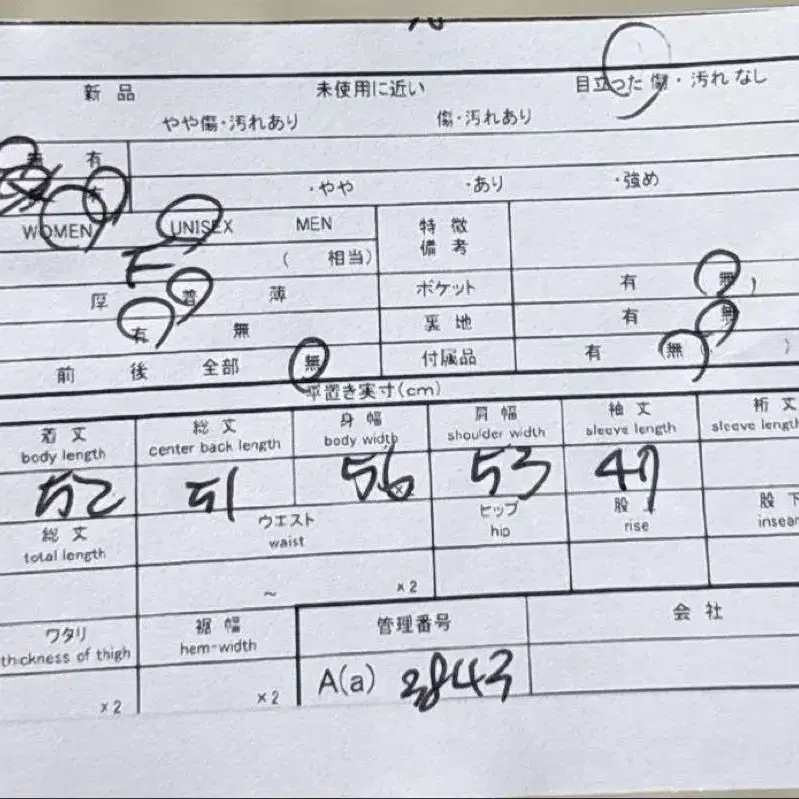 新品 未使用に近い 目立った傷・汚れなし
やや傷・汚れあり 傷・汚れあり
有
・やや ・あり ・強め
WOMEN UNISEX MEN 特徴
備考
F ( 相当)
厚 普 薄 ポケット 有 無 )
有 無 裏地 有 無
前 後 全部 無 付属品 有 (無 )
平置き実寸(cm)
着丈 総丈 身幅 肩幅 袖丈 裄丈
body length center back length body width shoulder width sleeve length sleeve length
52 51 56 53 47
総丈 ウエスト ヒップ 股 股下
total length waist hip rise inseam
~ ×2
ワタリ 裾幅 管理番号 会社
thickness of thigh hem-width
×2 ×2 A(a) 3843